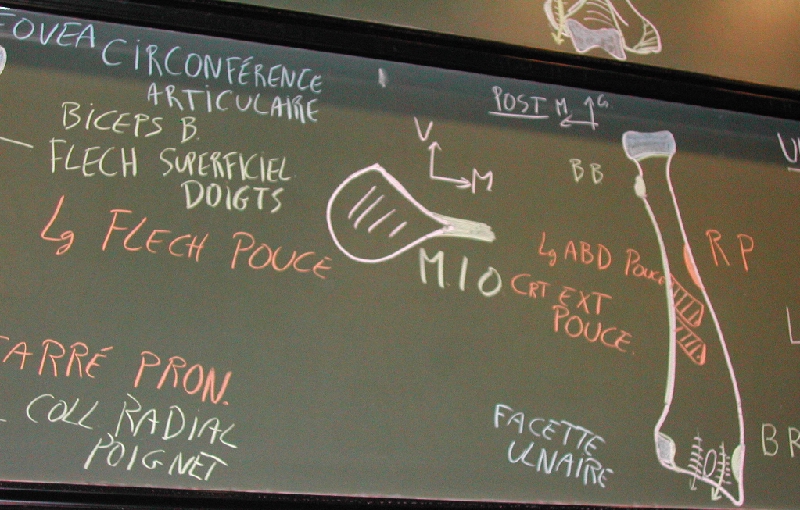 FOVEA
CIRCONFÉRENCE
ARTICULAIRE
BICEPS B.
FLECH SUPERFICIEL
DOIGTS
Lg FLECH POUCE
CARRÉ PRON.
COLL RADIAL
POIGNET
V
M
M.I.O
POST M G
BB
Lg ABD POUCE
CRT EXT
POUCE.
RP
FACETTE
ULNAIRE
BR